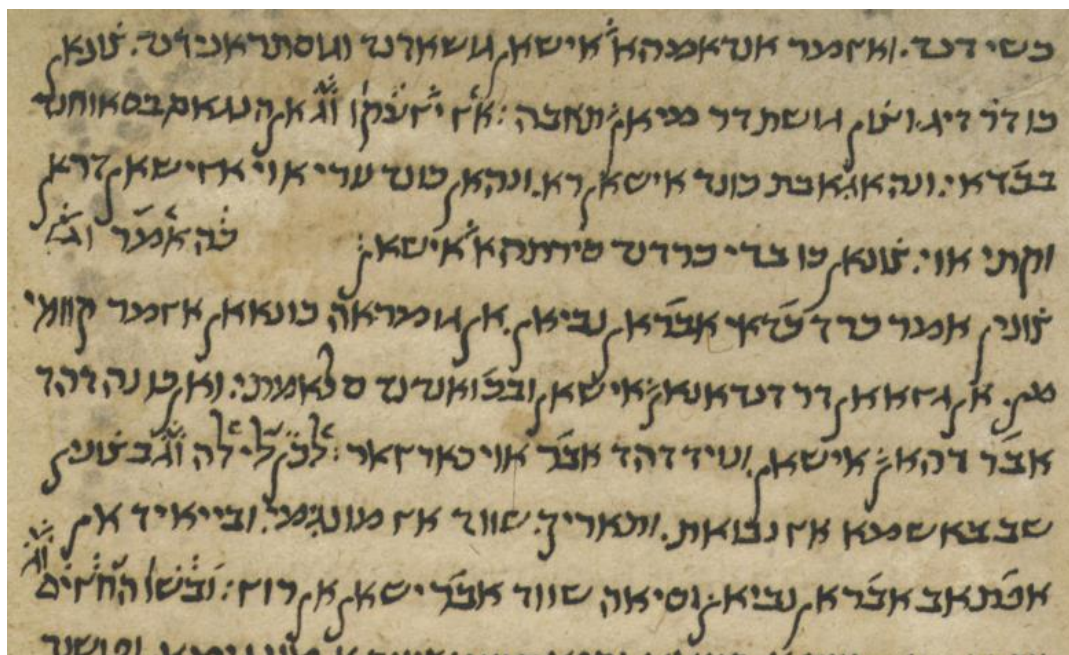 כשידנד. ואזמר אנדאמהאי אישאן גושארנד וגוסתראנידנד. צונאן
כו דר דיג. וצון גושת דר מיאן תאבה : אז יזעקו וג אן הנגאם בסאוחנד
בכדאי. ונה אגאבת כונד אישאן רא. ונהאן כונד עדי אוי אזישאן דראן
וקתי אוי. צונאן כו בדי כרדנד סירתהאי אישאן : כה אמר וג
צונין אמר כרד כדאי אברא נביאן. אן גומראה כונאאן אזמר קוומי
מן. אן גזאאן דר דנדאנאן אישאן ובכואננד סלאמתי. ואן כו נה דהד
אבר דהאן אישאן. וניד דהד אבר אוי כארזאר : לכן לילה וג בצונין
שב באשמא אז נבואת. ותאריך שווד אז מונגמי. ובייאיד אן
אפתאב אברא נביאן וסיאה שווד אבר ישאן אן רוז : ובשו החזים וג